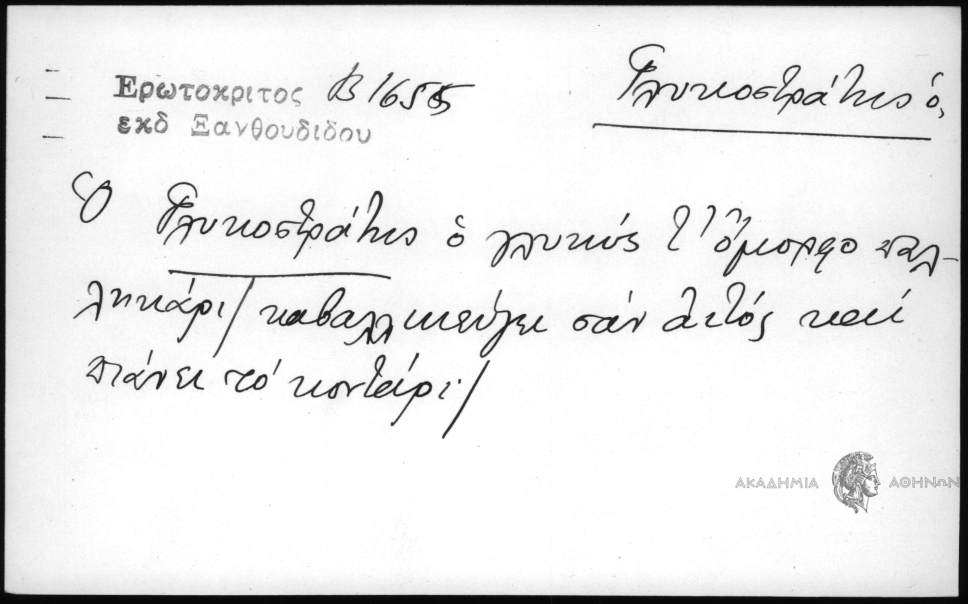 Ερωτοκριτος Β 1655
εκδ Ξανθουδιδου
Γλυκοστράτης ὁ,
Ὁ Γλυκοστράτης ὁ γλυκύς τ' ὄμορφο παλ-
ληκάρι/ καβαλλικεύγει σάν ἀετός καί
πιάνει τό κοντάρι/
ΑΚΑΔΗΜΙΑ ΑΘΗΝΩΝ